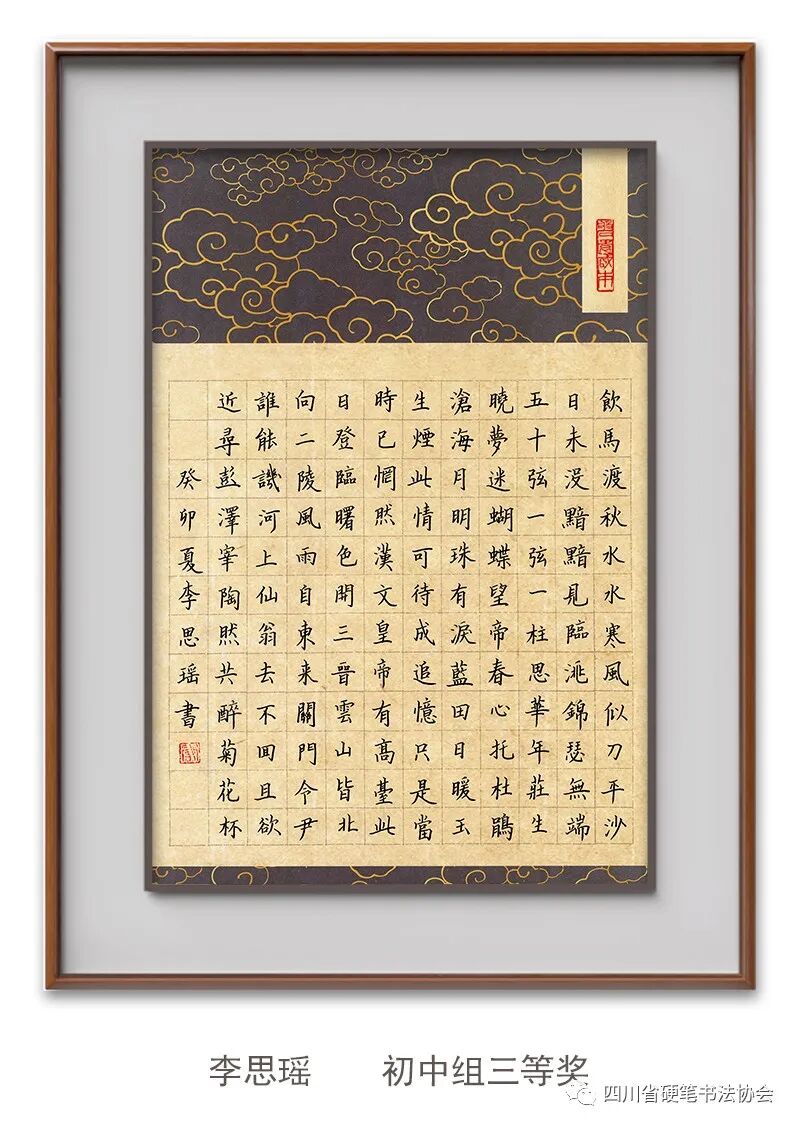 飲馬渡秋水水寒風似刀平沙
日未没黯黯見臨洮錦瑟無端
五十弦一弦一柱思華年莊生
曉夢迷蝴蝶望帝春心托杜鵑
滄海月明珠有淚藍田日暖玉
生煙此情可待成追憶只是當
時已惘然漢文皇帝有高臺此
日登臨曙色開三晉雲山皆北
向二陵風雨自東来關門令尹
誰能譏河上仙翁去不回且欲
近尋彭澤宰陶然共醉菊花杯
癸卯夏李思瑶書
李思瑶 初中组三等奖
四川省硬笔书法协会